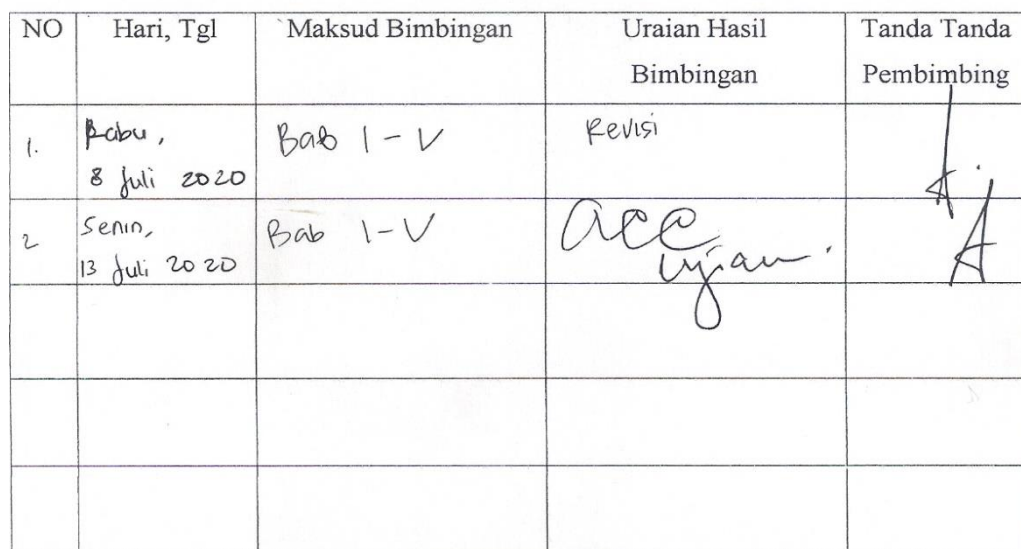 NO Hari, Tgl Maksud Bimbingan Uraian Hasil Bimbingan Tanda Tanda Pembimbing
1. Rabu, 8 Juli 2020 Bab I - V Revisi
2 Senin, 13 Juli 2020 Bab I - V acc ujian.